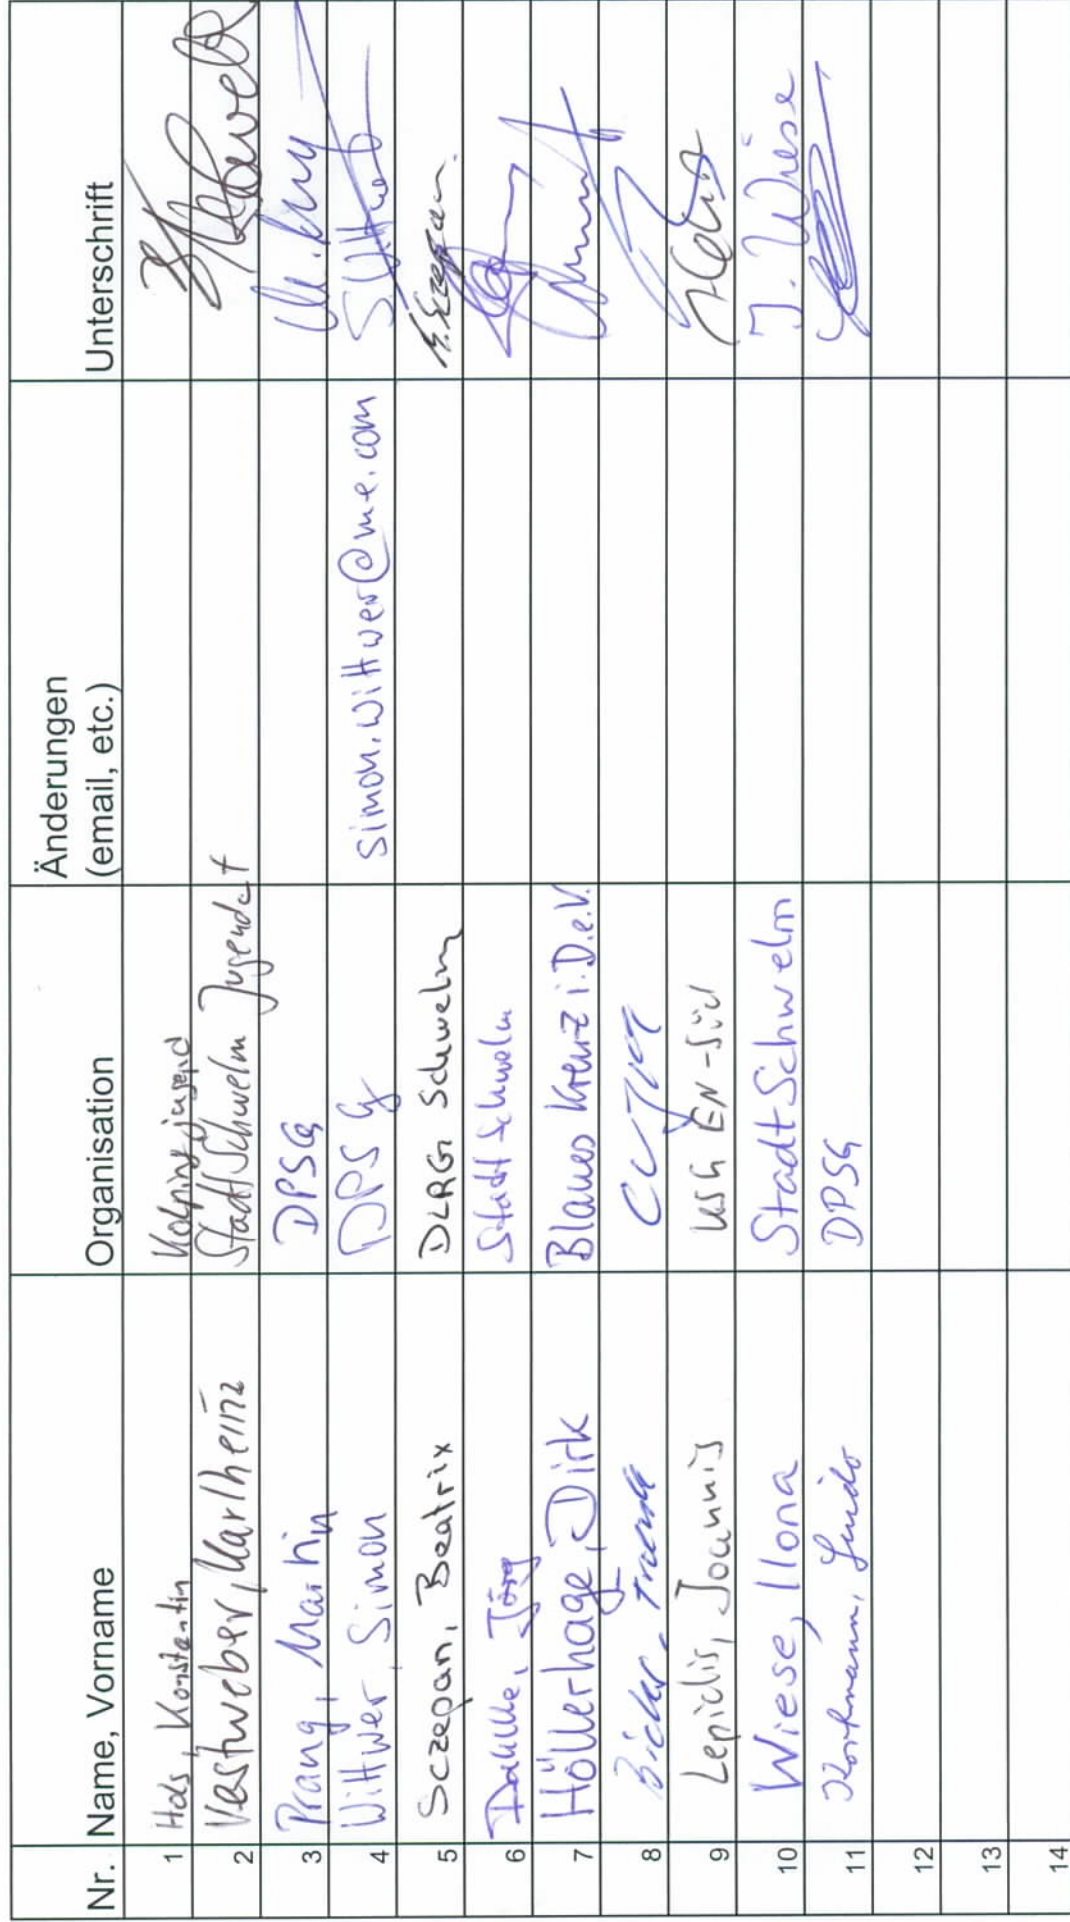 Nr. Name, Vorname Organisation Änderungen (email, etc.) Unterschrift
1 Konstantin Kolpingjugend
2 Vestweber, Karlheinz Stadt Schwelm
3 Prang, Martin DPSG
4 Wittwer, Simon DPSG simon.wittwer@me.com
5 Sczepan, Beatrix DLRG Schwelm
6 Jörg Stadt Schwelm
7 Höllerhage, Dirk Blaues Kreuz i.D.e.V.
8
9 Lepidis, Joannis EN-Süd
10 Wiese, Ilona Stadt Schwelm I. Wiese
11 Kortmann, Guido DPSG
12
13
14